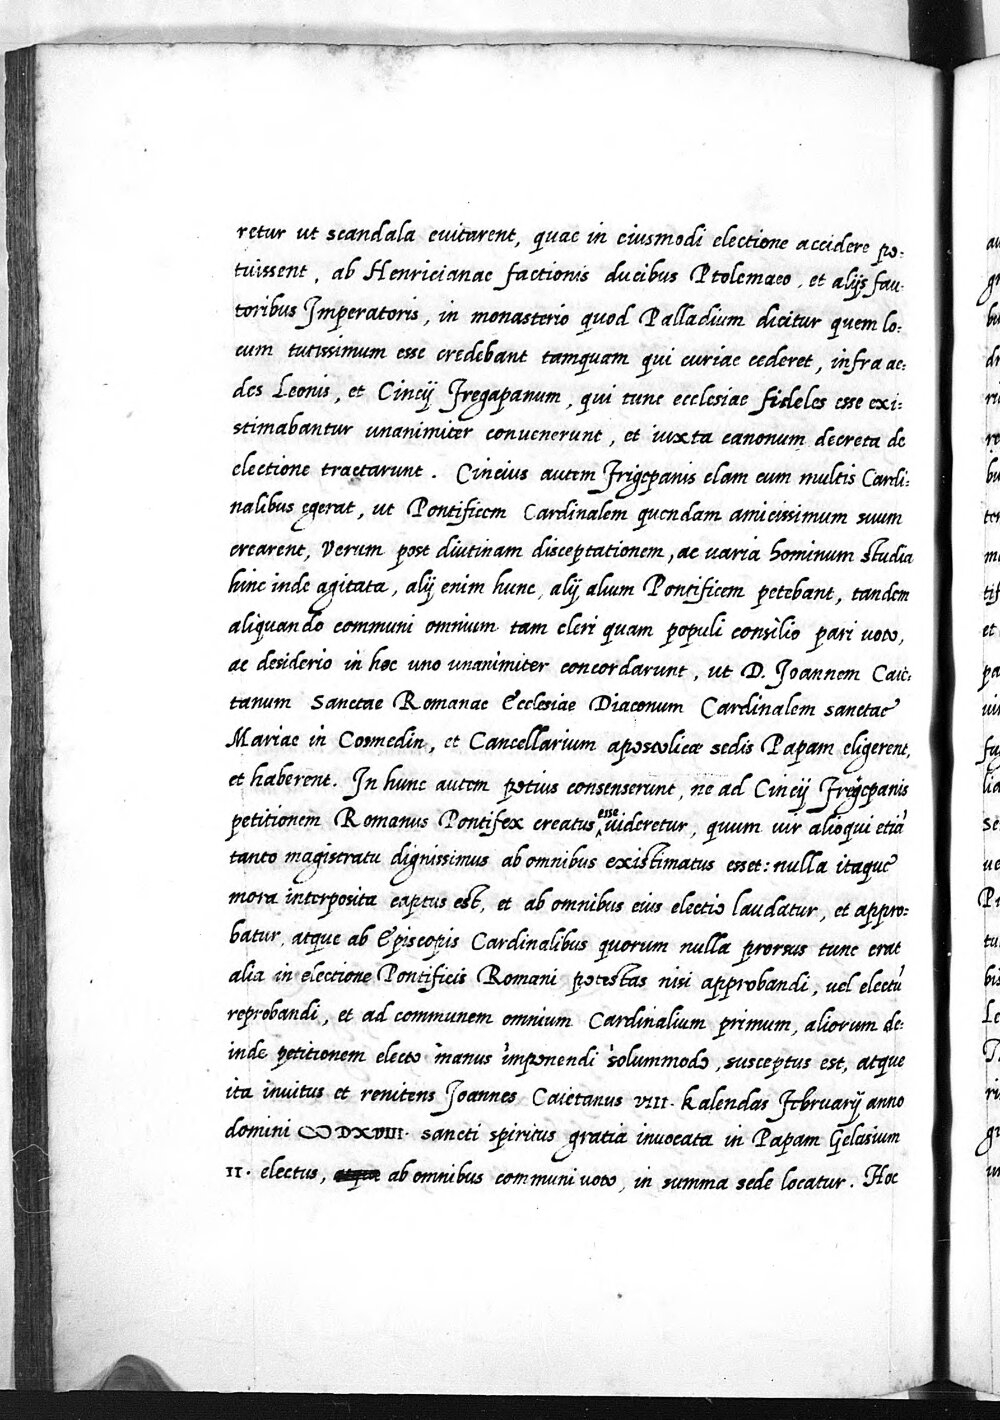 retur ut scandala euitarent, quae in eiusmodi electione accidere po:
tuissent, ab Henricianae factionis ducibus Ptolemaeo, et alijs fau:
toribus Imperatoris, in monasterio quod Palladium dicitur quem lo:
cum tutissimum esse credebant tamquam qui curiae cederet, infra ae:
des Leonis, et Cincij Fregapanum, qui tunc ecclesiae fideles esse exi:
stimabantur unanimiter conuenerunt, et iuxta canonum decreta de
electione tractarunt. Cincius autem Frigepanis clam cum multis Cardi:
nalibus egerat, ut Pontificem Cardinalem quendam amicissimum suum
crearent, Verum post diutinam disceptationem, ac uaria hominum studia
hinc inde agitata, alij enim hunc, alij alium Pontificem petebant, tandem
aliquando communi omnium tam cleri quam populi consilio pari uoto,
ac desiderio in hoc uno unanimiter concordarunt, ut D. Joannem Caie:
tanum Sanctae Romanae Ecclesiae Diaconum Cardinalem sanctae
Mariae in Cosmedin, et Cancellarium apostolicæ sedis Papam eligerent,
et haberent. In hunc autem potius consenserunt, ne ad Cincij Fregepanis
petitionem Romanus Pontifex creatus esse uideretur, quum uir alioqui etiā
tanto magistratu dignissimus ab omnibus existimatus esset: nulla itaque
mora interposita captus est, et ab omnibus eius electio laudatur, et appro:
batur, atque ab Episcopis Cardinalibus quorum nulla prorsus tunc erat
alia in electione Pontificis Romani potestas nisi approbandi, uel electū
reprobandi, et ad communem omnium Cardinalium primum, aliorum de:
inde petitionem electo manus imponendi solummodo, susceptus est, atque
ita inuitus et renitens Joannes Caietanus VIII. kalendas Februarij anno
domini ↀDXVIII. sancti spiritus gratia inuocata in Papam Gelasium
II. electus, ab omnibus communi uoto, in summa sede locatur. Hoc